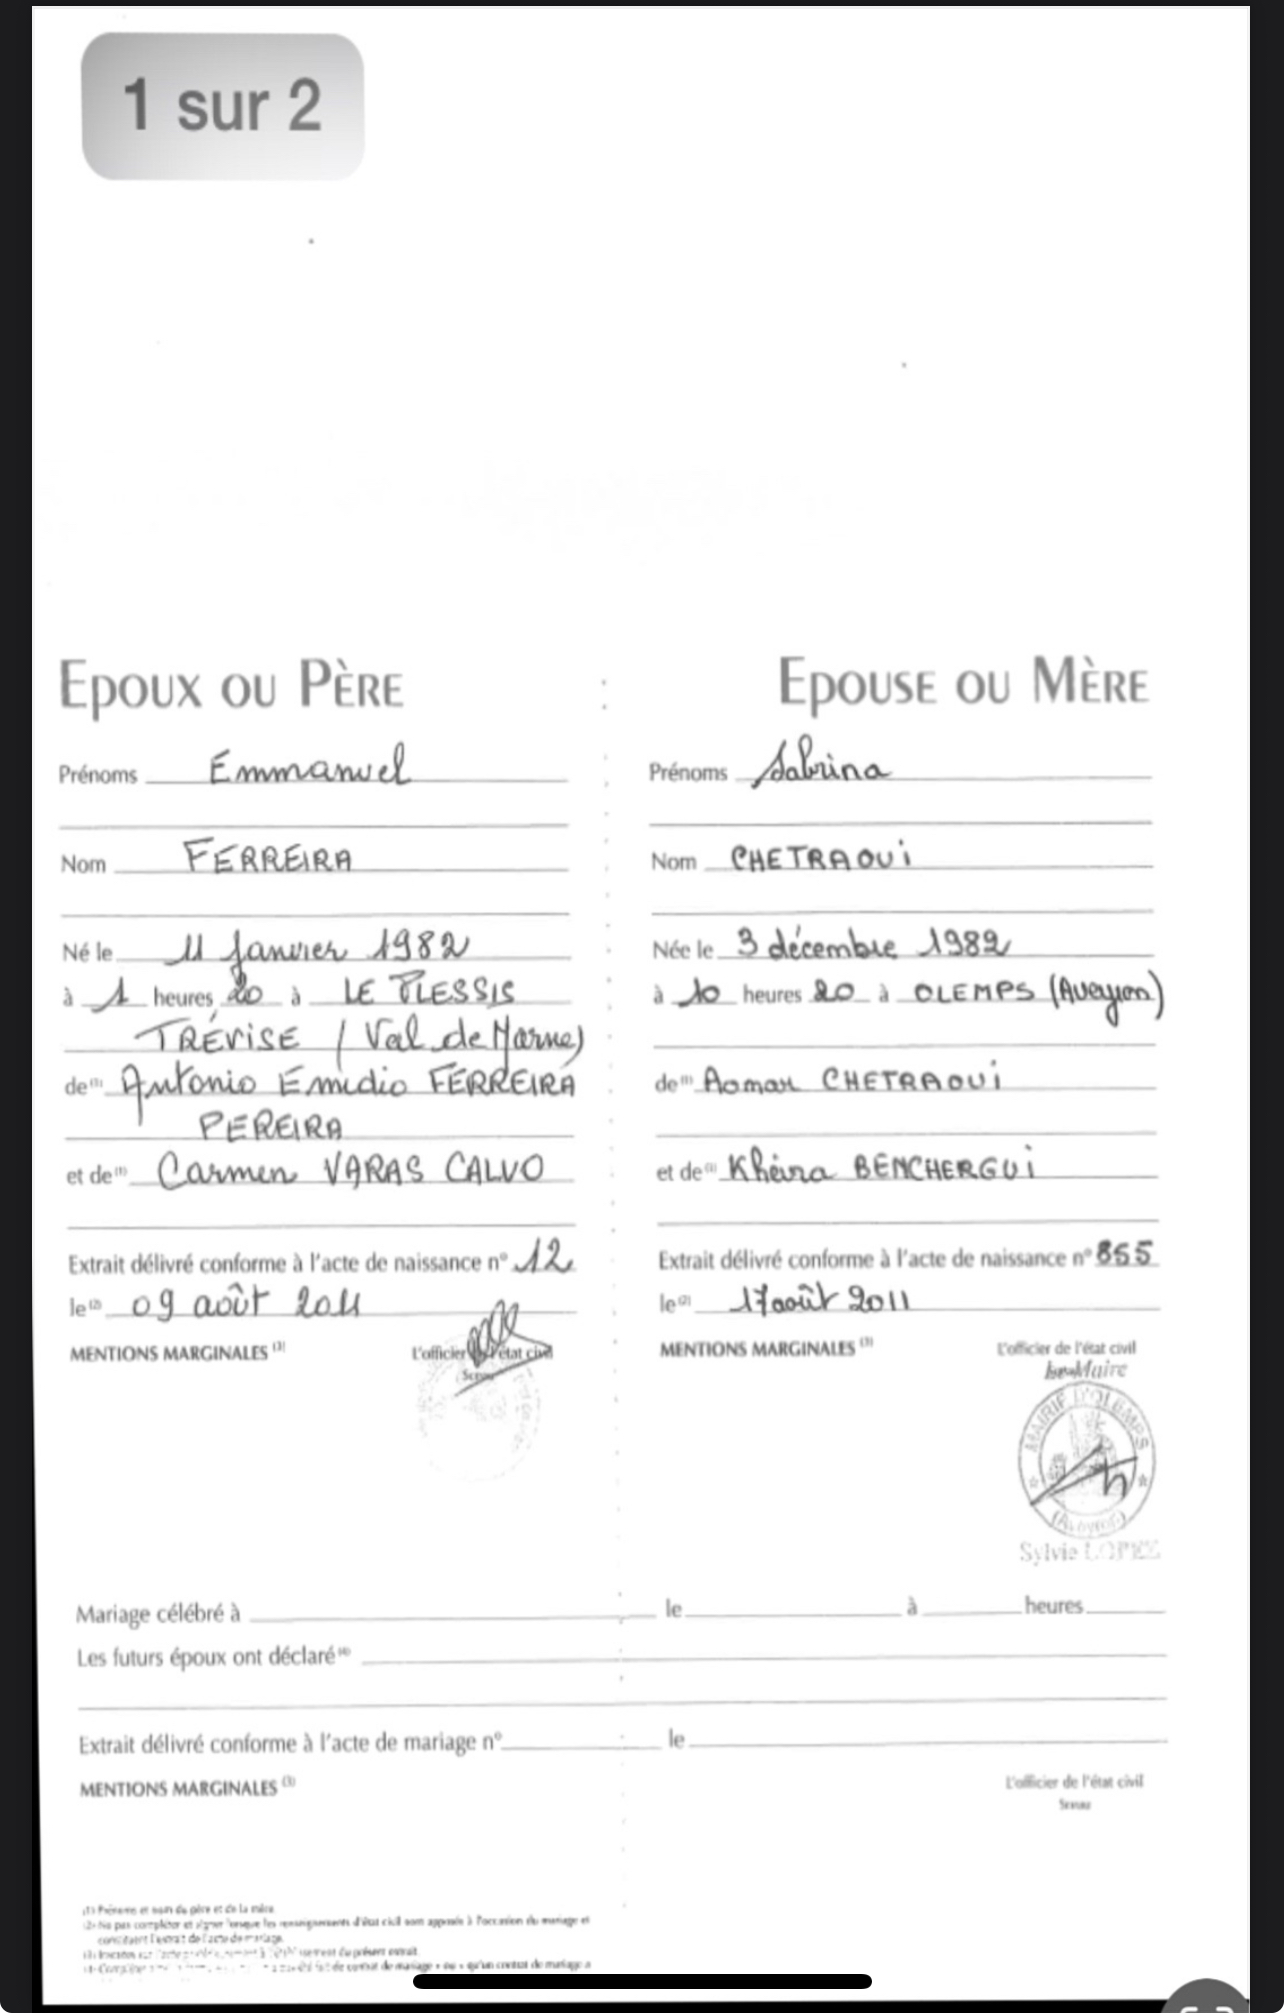 1 sur 2
EPOUX OU PÈRE
Prénoms Emmanuel
Nom FERREIRA
Né le 11 Janvier 1982
à 1 heures 20 à LE PLESSIS
TRÉVISE (Val de Marne)
de (1) Antonio Emidio FERREIRA
PEREIRA
et de (1) Carmen VARAS CALVO
Extrait délivré conforme à l'acte de naissance n° 12
le (2) 09 août 2011
MENTIONS MARGINALES (3)
L'officier de l'état civil
Sceau
EPOUSE OU MÈRE
Prénoms Sabrina
Nom CHETRAOUi
Née le 3 décembre 1982
à 10 heures 20 à OLEMPS (Aveyron)
de (1) Aomar CHETRAOUi
et de (1) Khéira BENCHERGUi
Extrait délivré conforme à l'acte de naissance n° 855
le (2) 17 août 2011
MENTIONS MARGINALES (3)
L'officier de l'état civil
Le Maire
MAIRIE D'OLEMPS
(Aveyron)
Sylvie LOPEZ
Mariage célébré à le à heures
Les futurs époux ont déclaré (4)
Extrait délivré conforme à l'acte de mariage n° le
MENTIONS MARGINALES (3)
L'officier de l'état civil
Sceau
(1) Prénoms et nom du père et de la mère.
(2) Ne pas compléter et signer lorsque les renseignements d'état civil sont apposés à l'occasion du mariage et
constituent l'extrait de l'acte de mariage.
(3) du présent extrait.
(4) de contrat de mariage » ou « qu'un contrat de mariage a